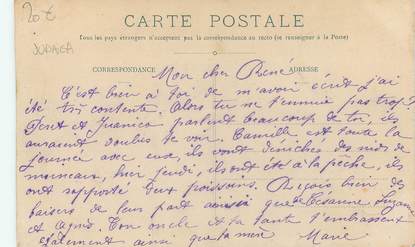 20€
JUDAICA
CARTE POSTALE
Tous les pays étrangers n'acceptent pas la correspondance au recto (se renseigner à la Poste)
CORRESPONDANCE
ADRESSE
Mon cher René
C'est bien à toi de m'avoir écrit j'ai
été très contente. Alors tu ne t'ennuie pas trop?
et Juanico parlent beaucoup de toi, ils
auraient voulus te voir. Camille est toute la
journée avec eux, ils vont dénicher des nids de
moineaux, hier jeudi, ils ont été à la pêche, ils
ont rapporté deux poissons. Reçois bien des
baisers de leur part ainsi que de
et Ton oncle et ta tante t'embrassent
également ainsi que ta mère Marie